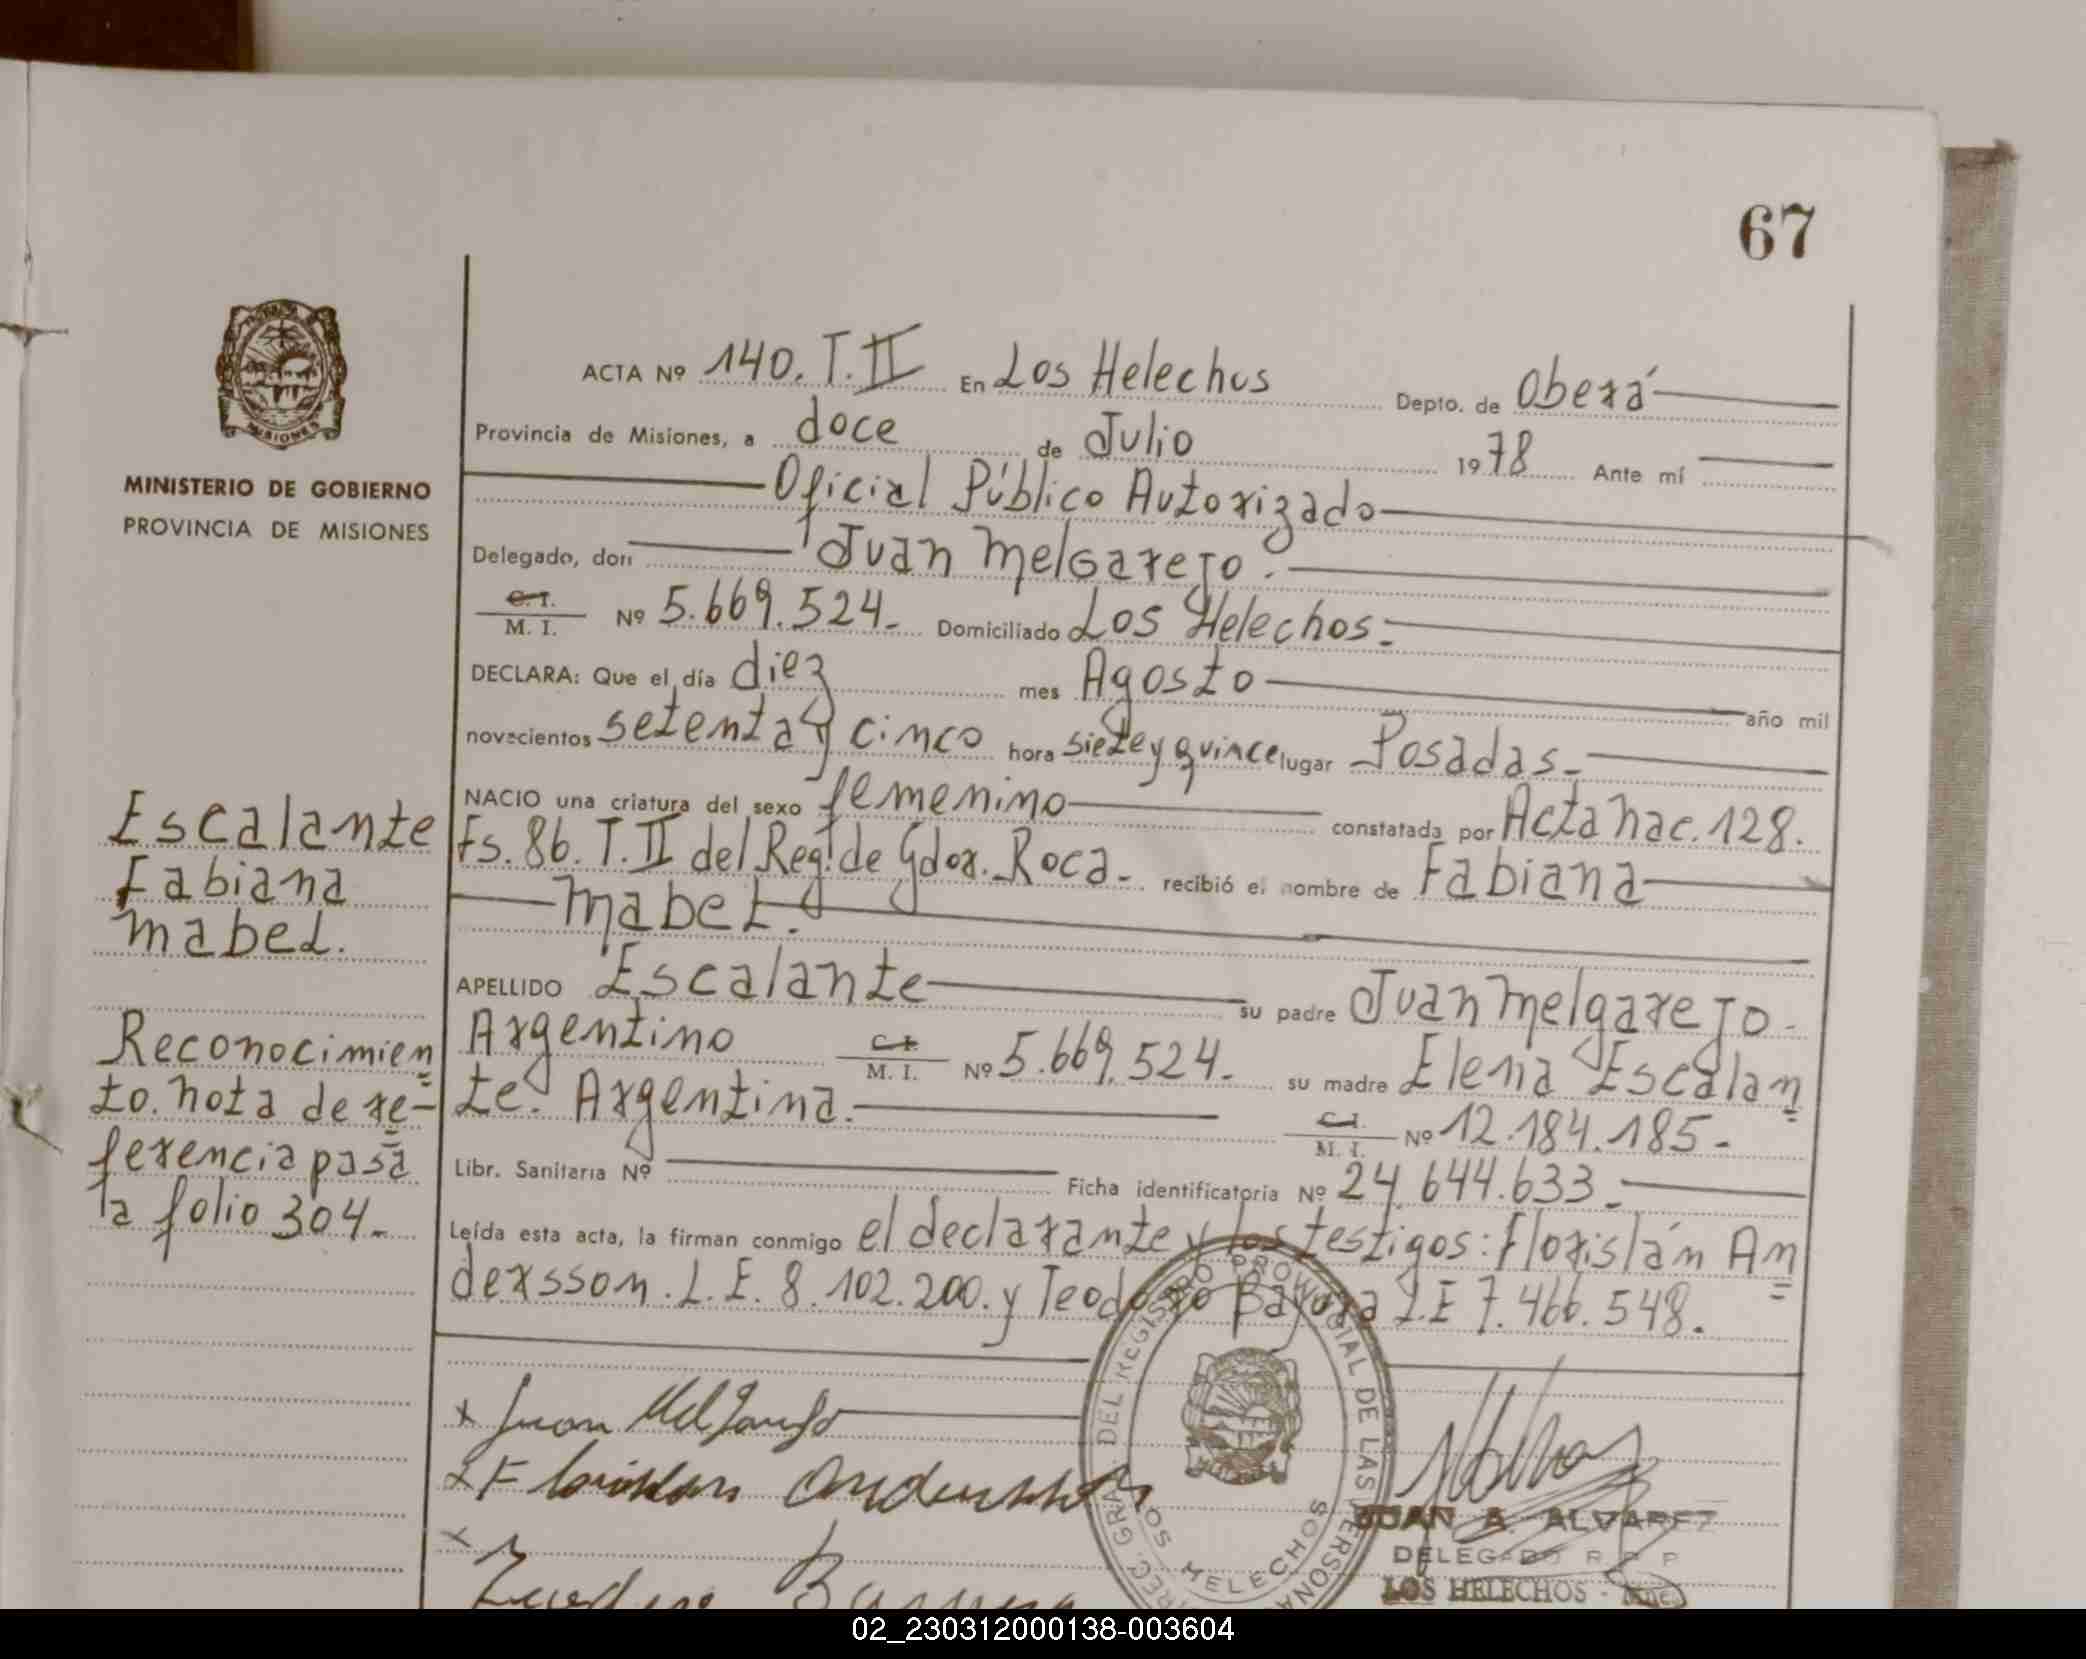 67
ACTA Nº 140. T. II En Los Helechos Depto. de Oberá
Provincia de Misiones, a doce de Julio 1978 Ante mí
Oficial Público Autorizado
Delegado, don Juan Melgarejo.
C. I.
M. I. Nº 5.669.524.- Domiciliado Los Helechos.-
DECLARA: Que el día diez mes Agosto año mil
novecientos setenta y cinco hora siete y quince lugar Posadas.-
NACIO una criatura del sexo femenino constatada por Acta Nac. 128.
Fs. 86. T. II del Reg. de Gdor. Roca.- recibió el nombre de Fabiana
Mabel.
APELLIDO Escalante su padre Juan Melgarejo.-
Argentino C. I. M. I. Nº 5.669.524.- su madre Elena Escalan=
te. Argentina. C. I. M. I. Nº 12.184.185.-
Libr. Sanitaria Nº Ficha identificatoria Nº 24.644.633.-
Leída esta acta, la firman conmigo el declarante y los testigos: Florislán An=
dersson. L. E. 8.102.200. y Teodoro L.E 7.466.548.
MINISTERIO DE GOBIERNO
PROVINCIA DE MISIONES
MISIONES
Escalante
Fabiana
Mabel.
Reconocimien=
to. Nota de re=
ferencia pasa
la folio 304.-
x Juan Melgarejo
x Florislan Andersson
x
DEL REGISTRO PROVINCIAL DE LAS PERSONAS
LOS HELECHOS
JUAN A. ALVAREZ
DELEGADO R P P
LOS HELECHOS -
02_230312000138-003604